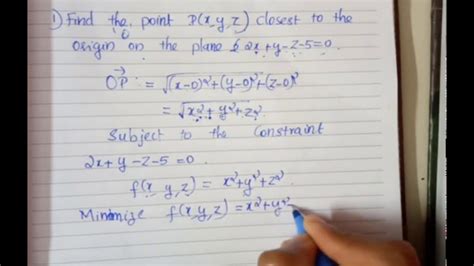 1) Find the point P(x,y,z) closest to the
origin on the plane 2x+y-z-5=0.
OP⃗ = √(x-0)²+(y-0)²+(z-0)²
= √x²+y²+z²
Subject to the constraint
2x+y-z-5=0.
f(x,y,z) = x²+y²+z².
Minimize f(x,y,z) = x²+y²